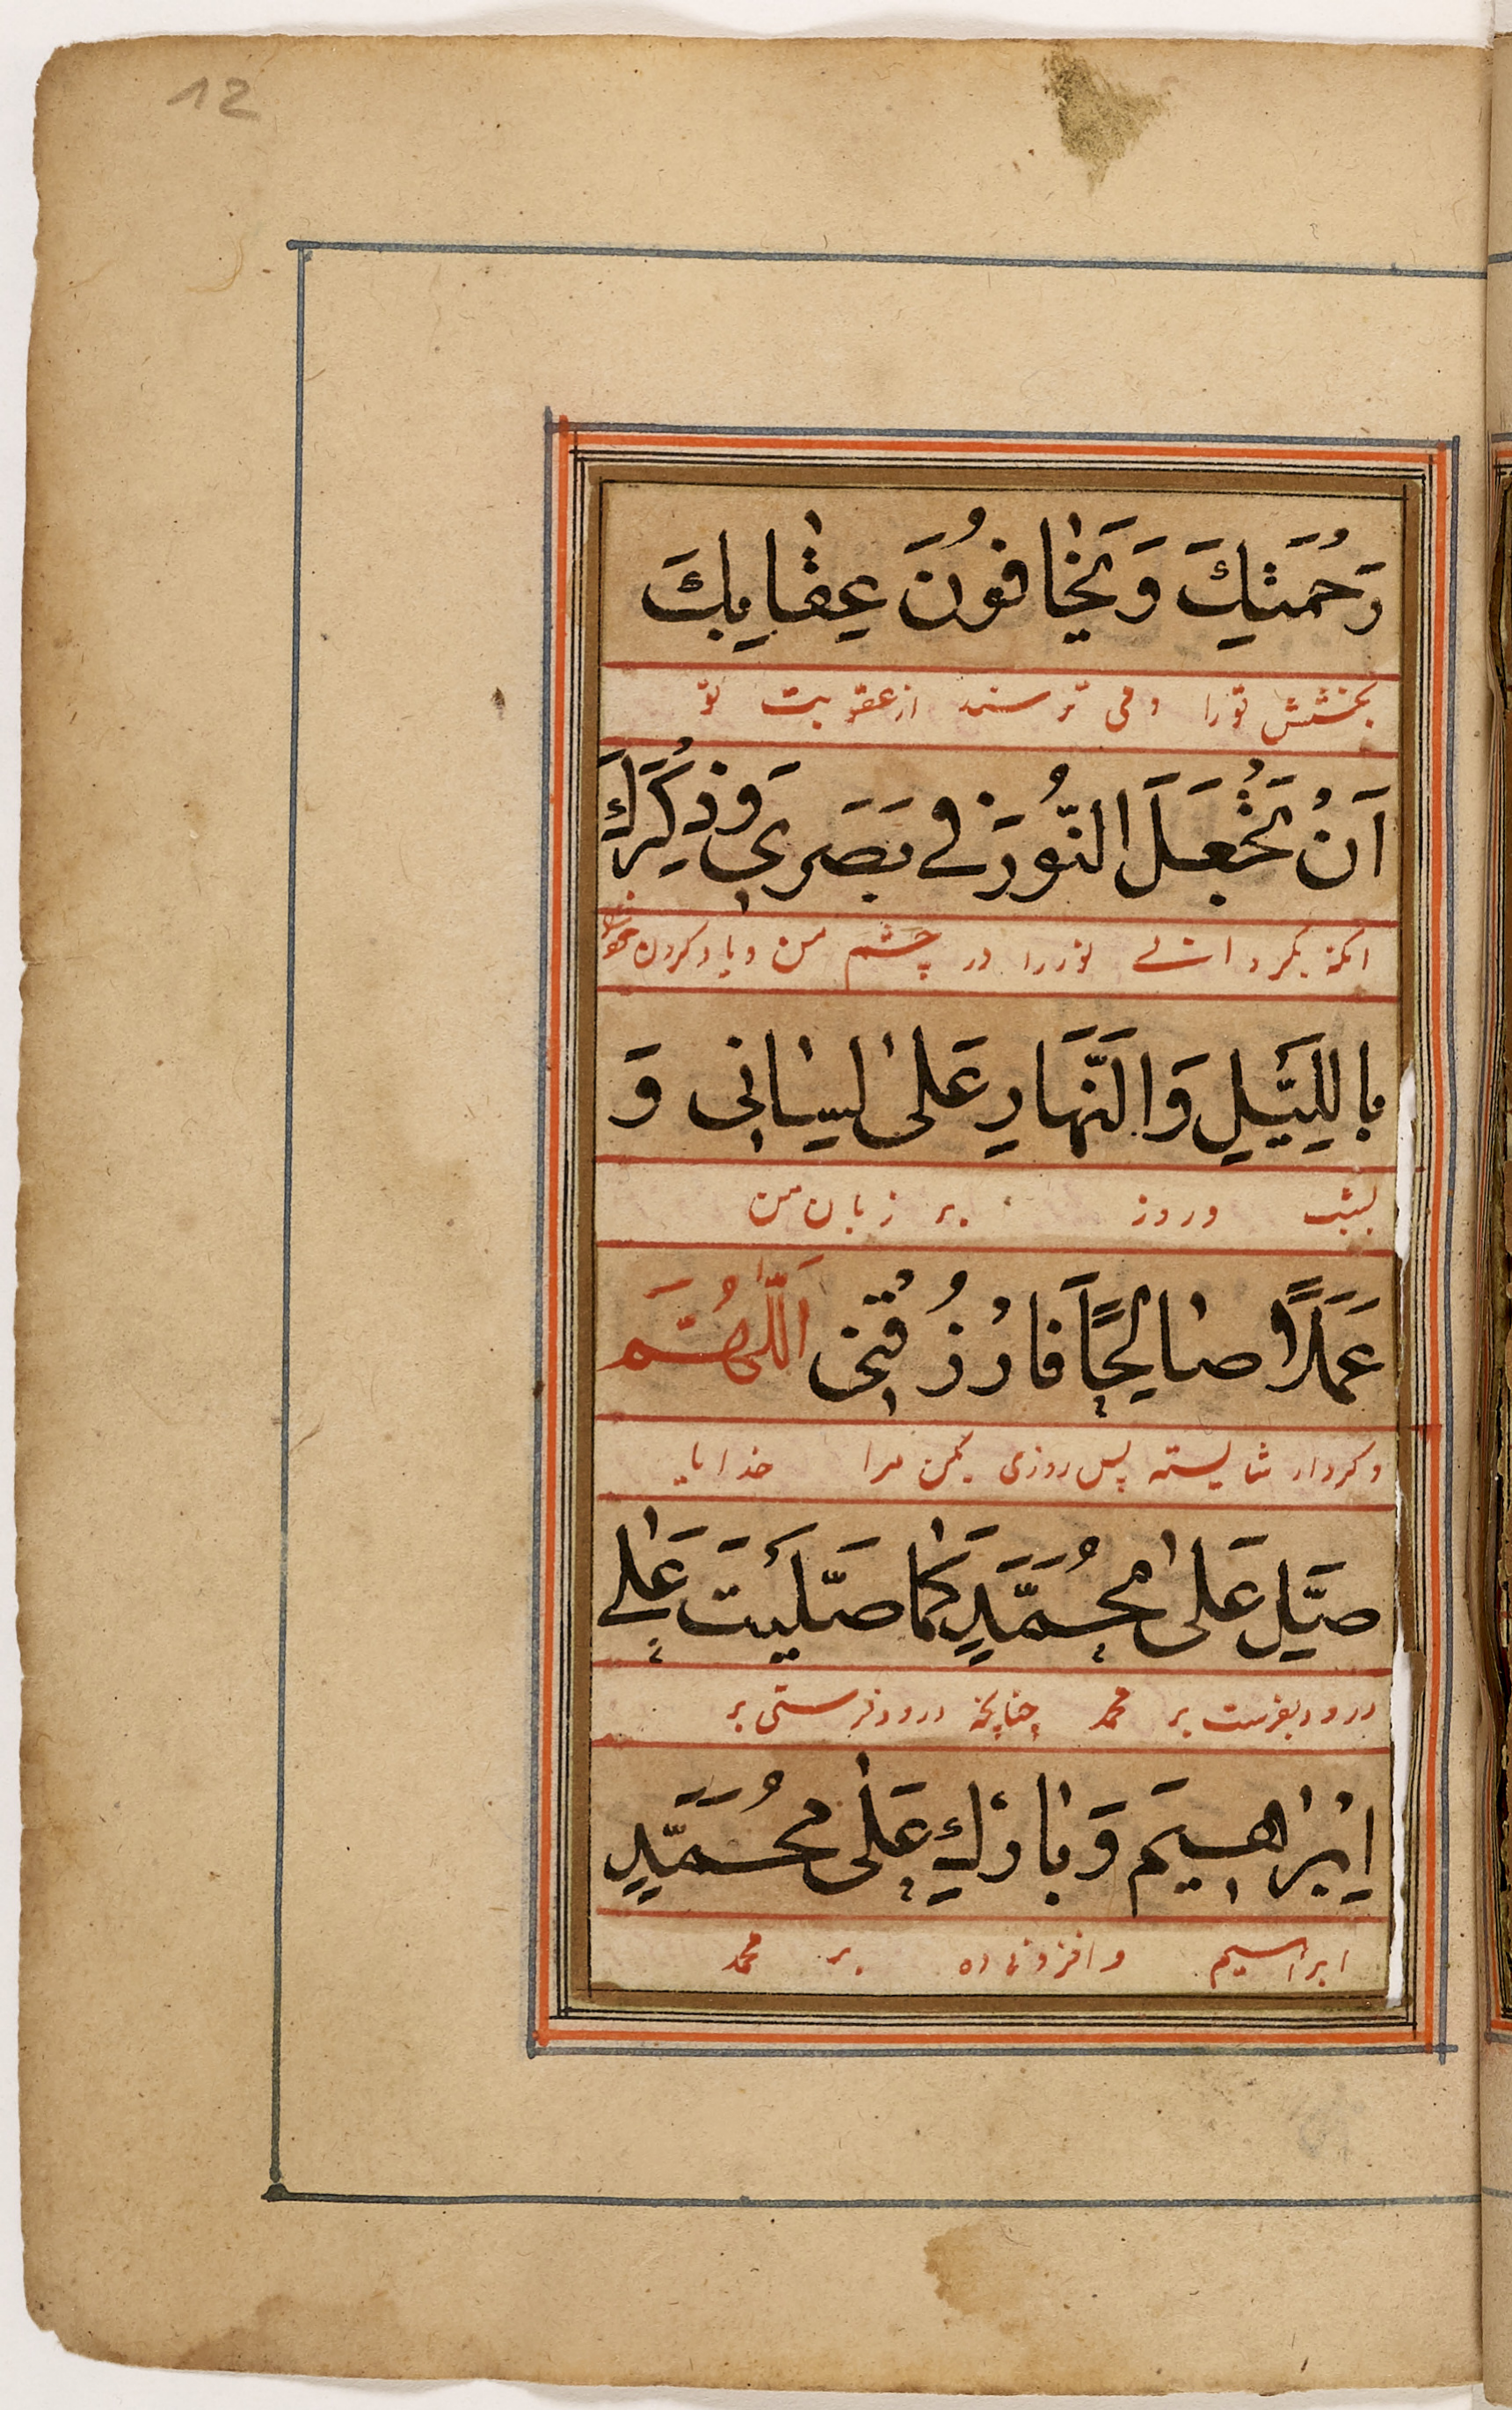 12
رَحْمَتِكَ وَيَخافُونَ عِقابِكَ
بخشش تورا ومی ترسند از عقوبت تو
اَنْ تَجْعَلَ النُّورَ فی بَصَری وَذِكْرَكَ
انکه بگردانی نور را در چشم من و یاد کردن خود
بِاللَّيْلِ وَالنَّهَارِ عَلىٰ لِسٰانی وَ
بشب وروز بر زبان من
عَمَلًا صٰالِحًا فَارْزُقْنی اَللّٰهُمَّ
وکردار شایسته پس روزی بکن مرا خدایا
صَلِّ عَلىٰ مُحَمَّدٍ كَمٰا صَلَّيْتَ عَلىٰ
درود بفرست بر محمد چنانچه درود فرستی بر
اِبْرٰاهِيمَ وَبٰارِكْ عَلىٰ مُحَمَّدٍ
ابراهیم وافزونی ده بر محمد